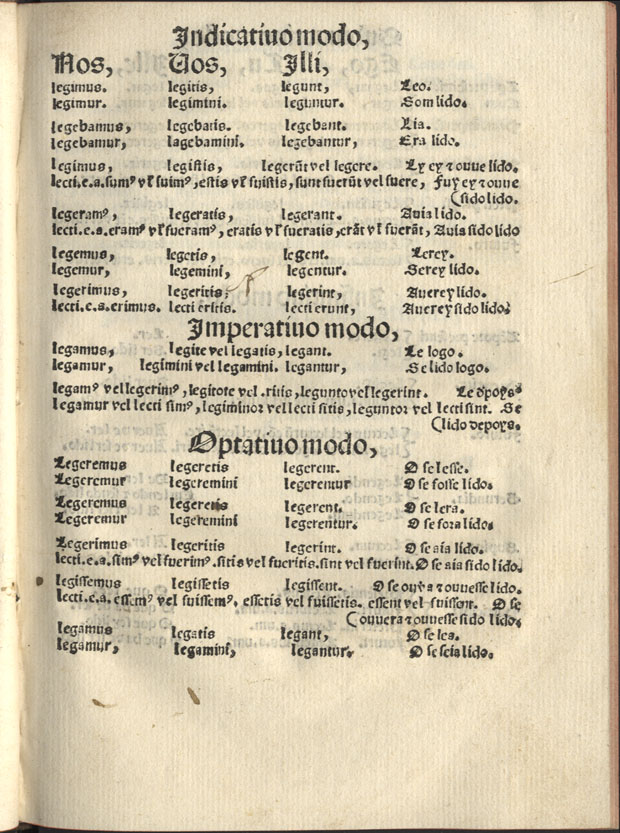 Indicatiuo modo,
Nos, Uos, Illi,
legimus. legitis, legunt, Leo.
legimur. legimini. leguntur. Som lido.
legebamus, legebatis. legebant. Lia.
legebamur, lagebamini. legebantur, Era lido.
legimus, legistis, legerũt vel legere. Ly ey ⁊ ouue lido.
lecti.e.a.sumꝰ vł fuimꝰ, estis vł fuistis, sunt fuerũt vel fuere, fuy ey ⁊ ouue
(sido lido.
legeramꝰ, legeratis, legerant. Auia lido.
lecti.e.s.eramꝰ vł fueramꝰ, eratis vł fueratis, erãt vł fuerãt, Auia sido lido
legemus, legetis, legent. Lerey.
legemur, legemini, legentur. Serey lido.
legerimus, legeritis, legerint, Auerey lido.
lecti.e.s.erimus. lecti eritis. lecti erunt, Auerey sido lido.
Imperatiuo modo,
legamus, legite vel legatis, legant. Le logo.
legamur, legimini vel legamini. legantur, Se lido logo.
legamꝰ vel legerimꝰ, legitote vel .ritis, legunto vel legerint. Le dpoysꝰ
legamur vel lecti simꝰ, legiminor vel lecti sitis, leguntor vel lecti sint. Se
(lido depoys.
Optatiuo modo,
Legeremus legeretis legerent. O se lesse.
Legeremur legeremini legerentur O se fosse lido.
Legeremus legeretis legerent. O se lera.
Legeremur legeremini legerentur. O se fora lido.
Legerimus legeritis legerint. O se aia lido.
lecti.e.a.simꝰ vel fuerimꝰ.sitis vel fueritis.sint vel fuerint. O se aia sido lido.
legissemus legissetis legissent. O se ouvera ⁊ ouuesse lido.
lecti.e.a.essemꝰ vel fuissemꝰ. essetis vel fuissetis. essent vel fuissent. O se
(ouuera ⁊ ouuesse sido lido.
legamus legatis legant, O se lea.
legamur, legamini, legantur. O se seia lido.